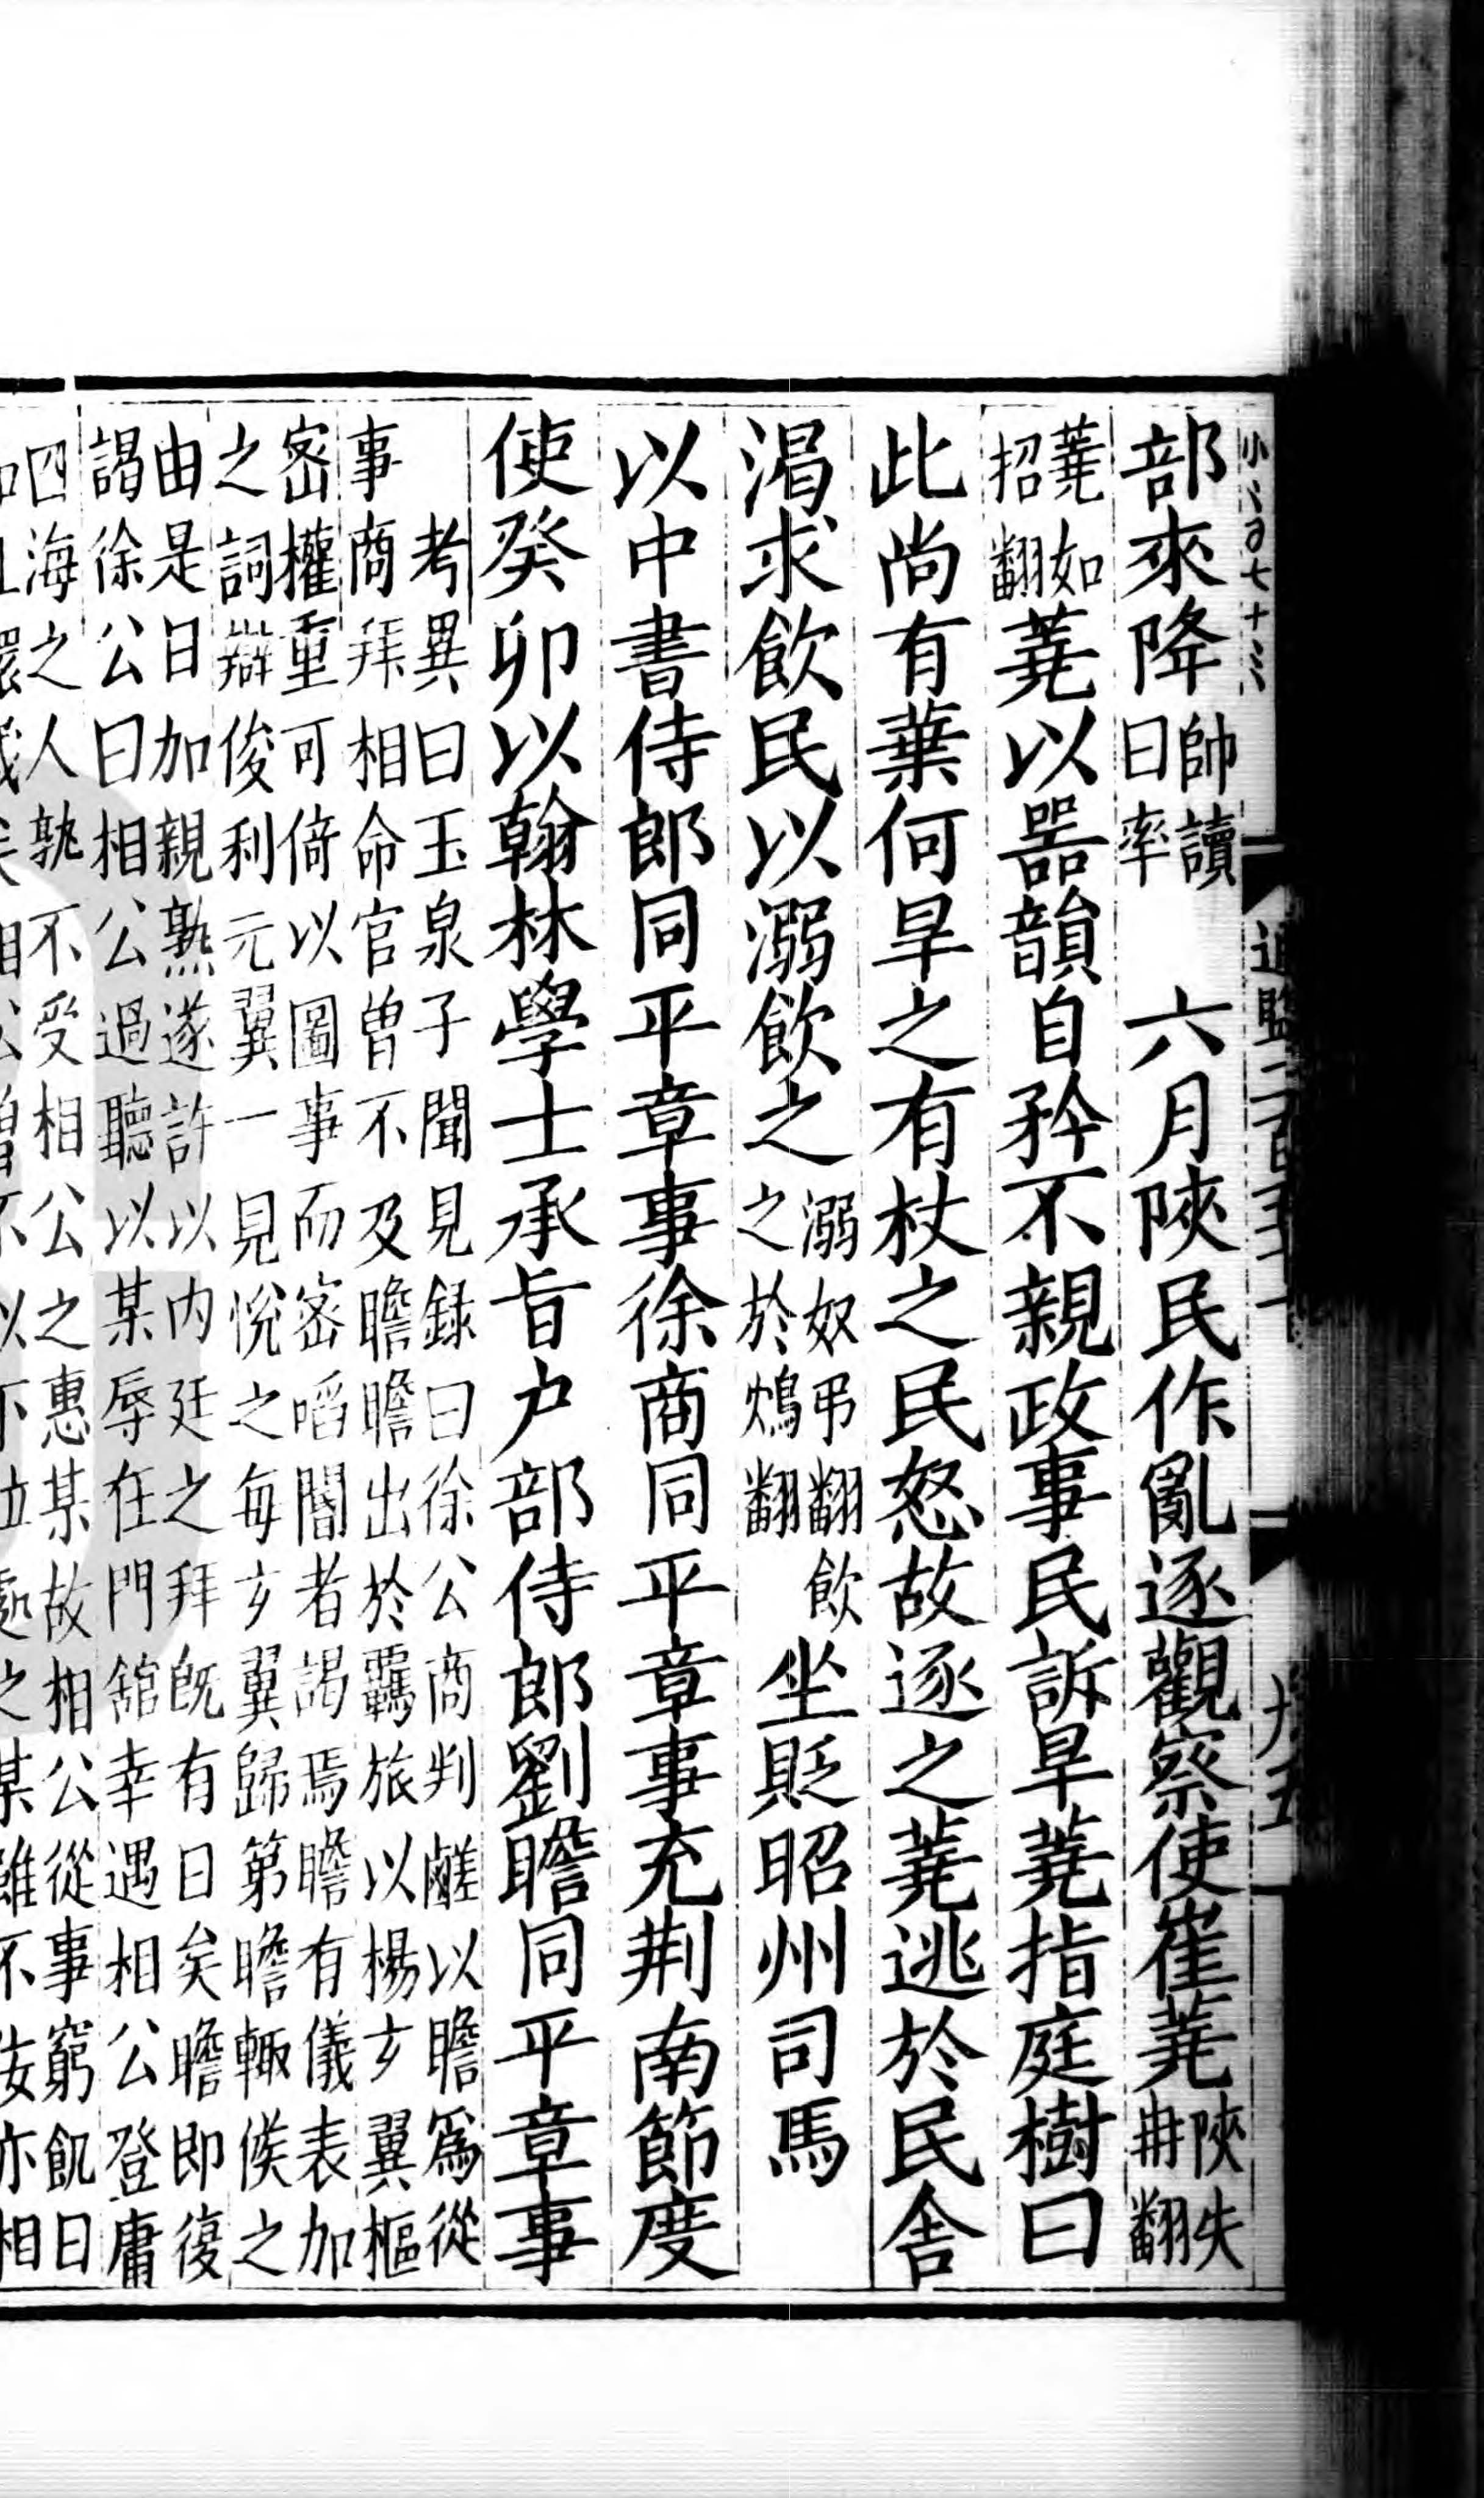 小八百七十三
部來降帥讀曰率 六月陝民作亂逐觀察使崔蕘陝失冉翻
蕘如招翻蕘以器韻自矜不親政事民訴旱蕘指庭樹曰
此尚有葉何旱之有杖之民怒故逐之蕘逃於民舍
渴求飲民以溺飲之溺奴弔翻飲之於鴆翻坐貶昭州司馬
以中書侍郎同平章事徐商同平章事充荆南節度
使癸卯以翰林學士承旨户部侍郎劉瞻同平章事
考異曰玉泉子聞見録曰徐公商判鹺以瞻爲從
事商拜相命官曽不及瞻瞻出於羈旅以楊玄翼樞
宻權重可倚以圖事而宻啗閽者謁焉瞻有儀表加
之詞辯俊利元翼一見悅之每玄翼歸第瞻輙候之
由是日加親熟遂許以内廷之拜既有日矣瞻即復
謁徐公曰相公過聽以某辱在門舘幸遇相公登庸
四海之人孰不受相公之惠某故相公從事窮飢日